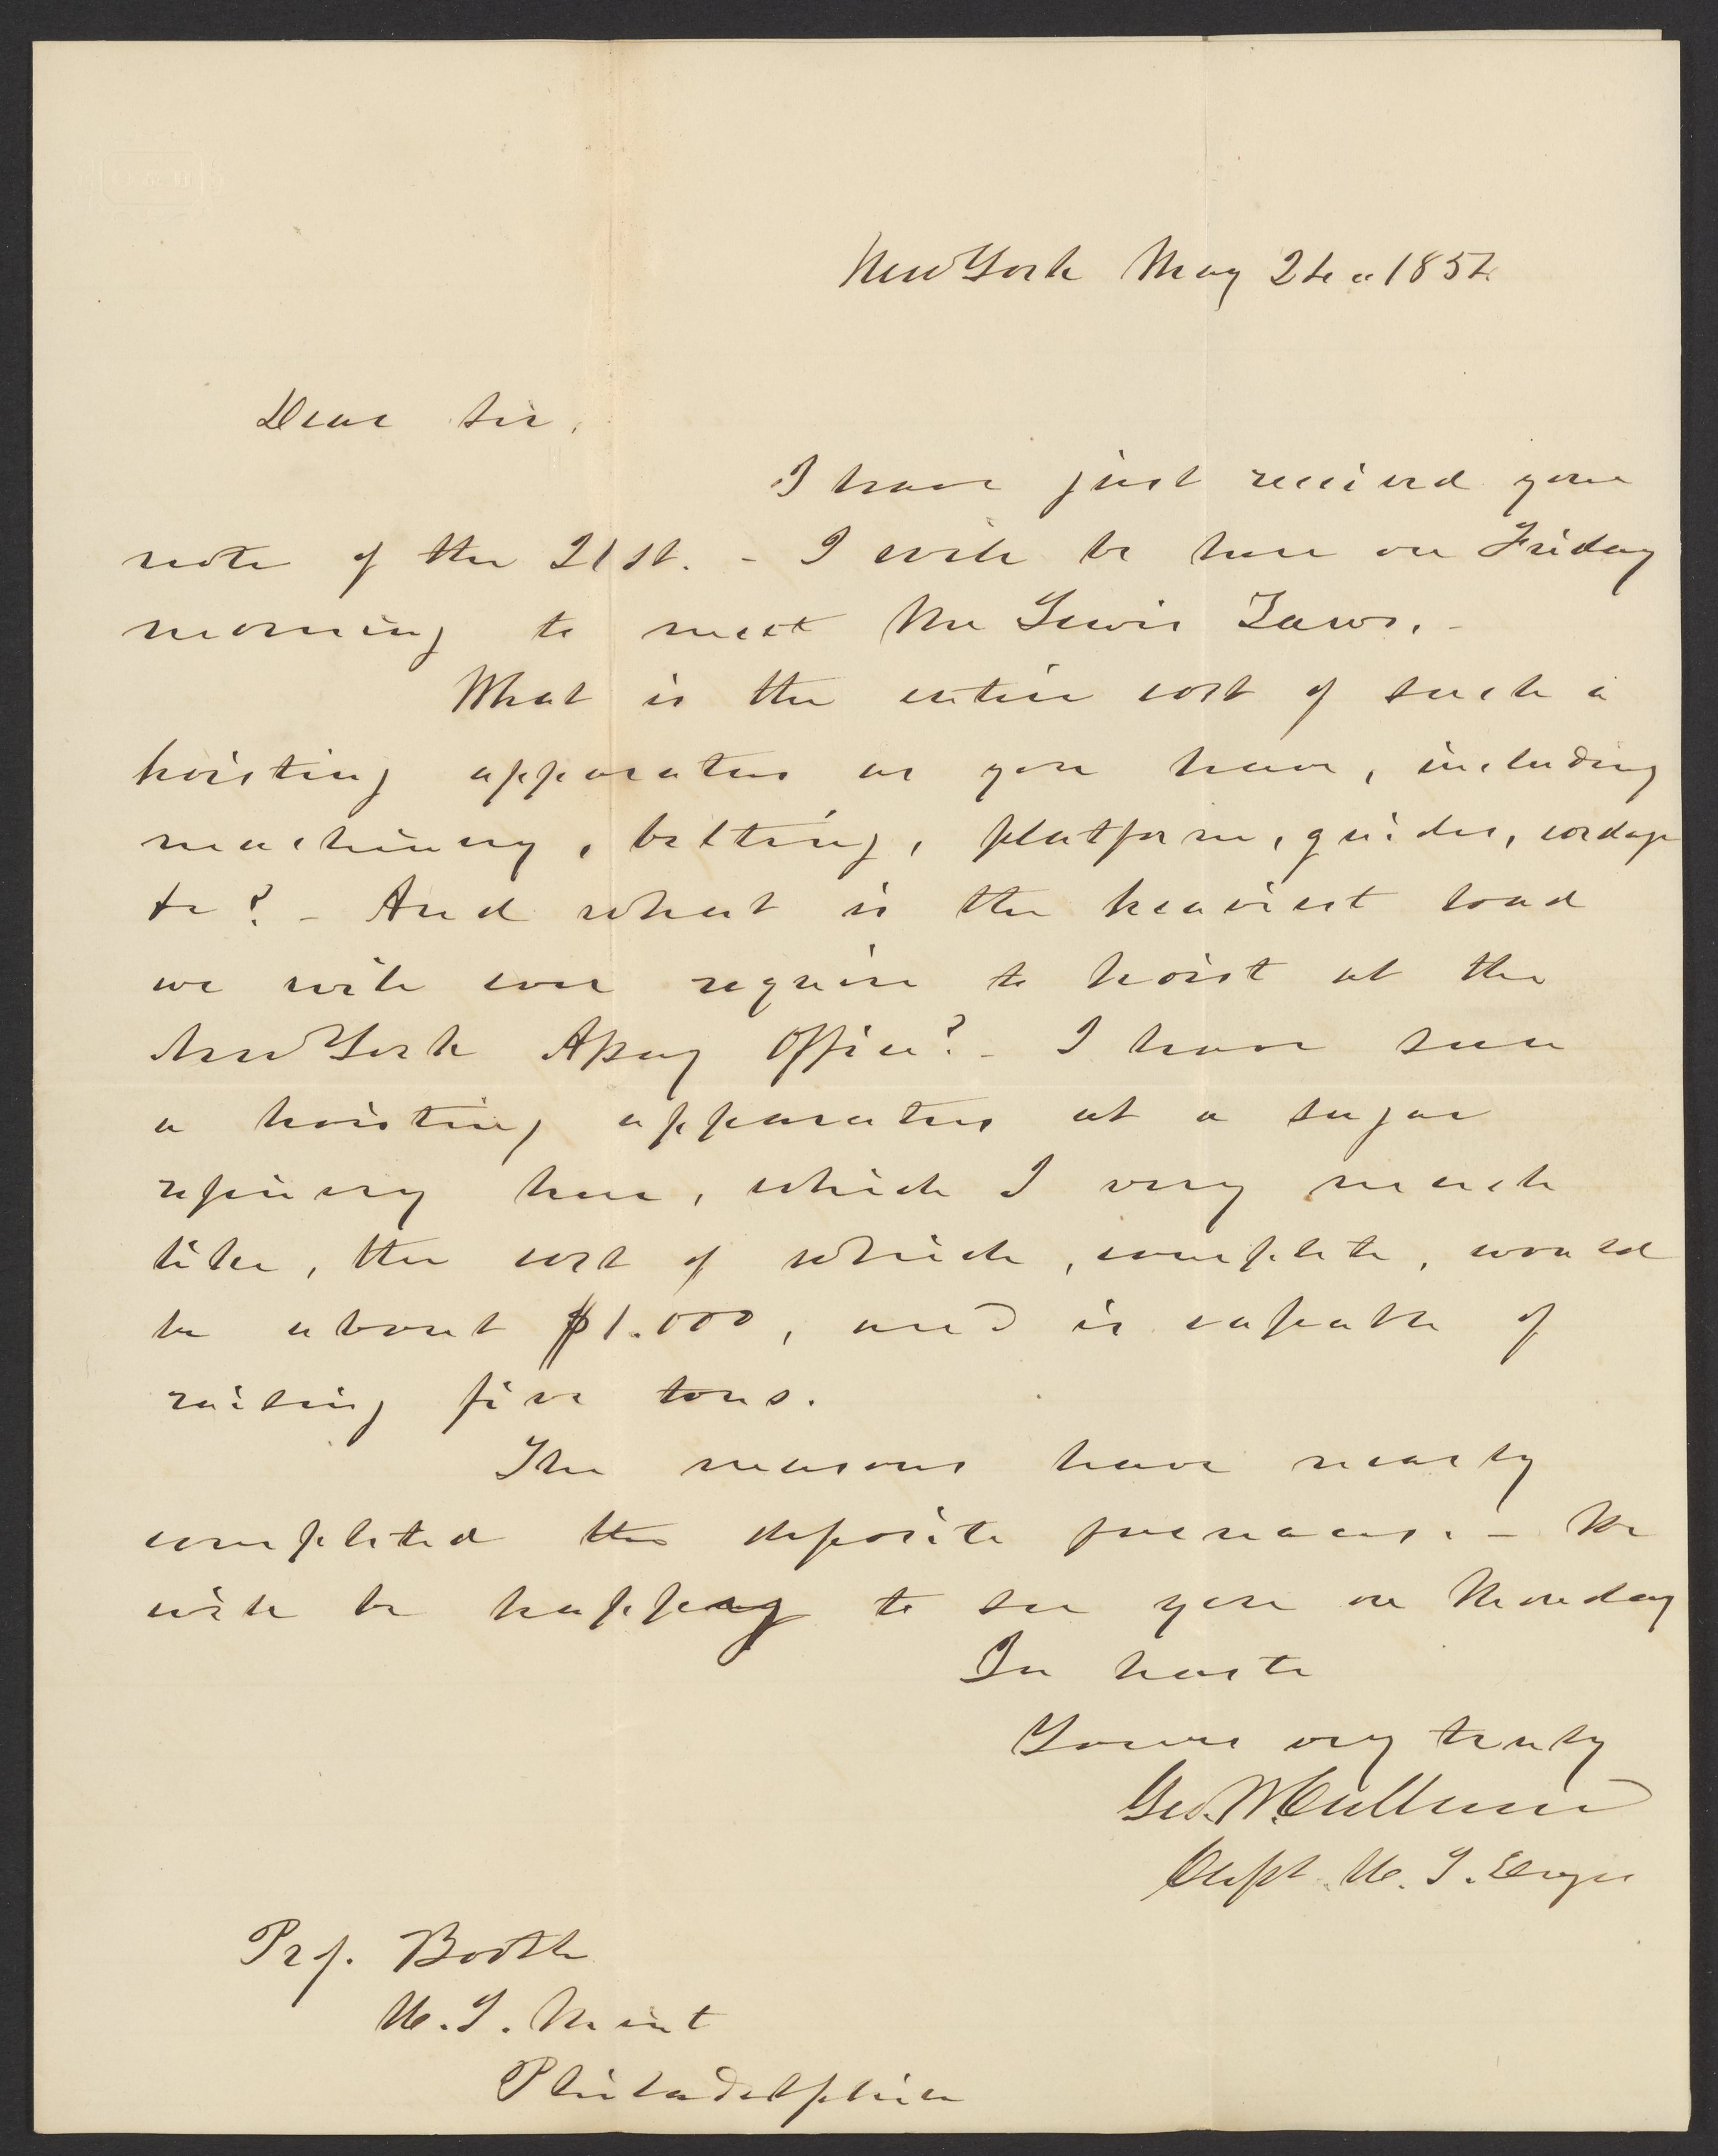 New York May 24 " 1854
Dear Sir,
I have just received your
note of the 21st. - I will be here on Friday
morning to meet Mr Lewis Laws. -
What is the entire cost of such a
hoisting apparatus as you have, including
machinery, belting, platform, guides, cordage
&c? - And what is the heaviest load
we will ever require to hoist at the
New York Assay Office? - I have seen
a hoisting apparatus at a sugar
refinery here, which I very much
like, the cost of which, complete, would
be about $1.000, and is capable of
raising five tons.
The masons have nearly
completed the deposite furnaces. - We
will be happy to see you on Monday
In haste
Yours very truly
Geo. W. Cullum
Capt. U. S. Engrs
Prof. Booth
U. S. Mint
Philadelphia